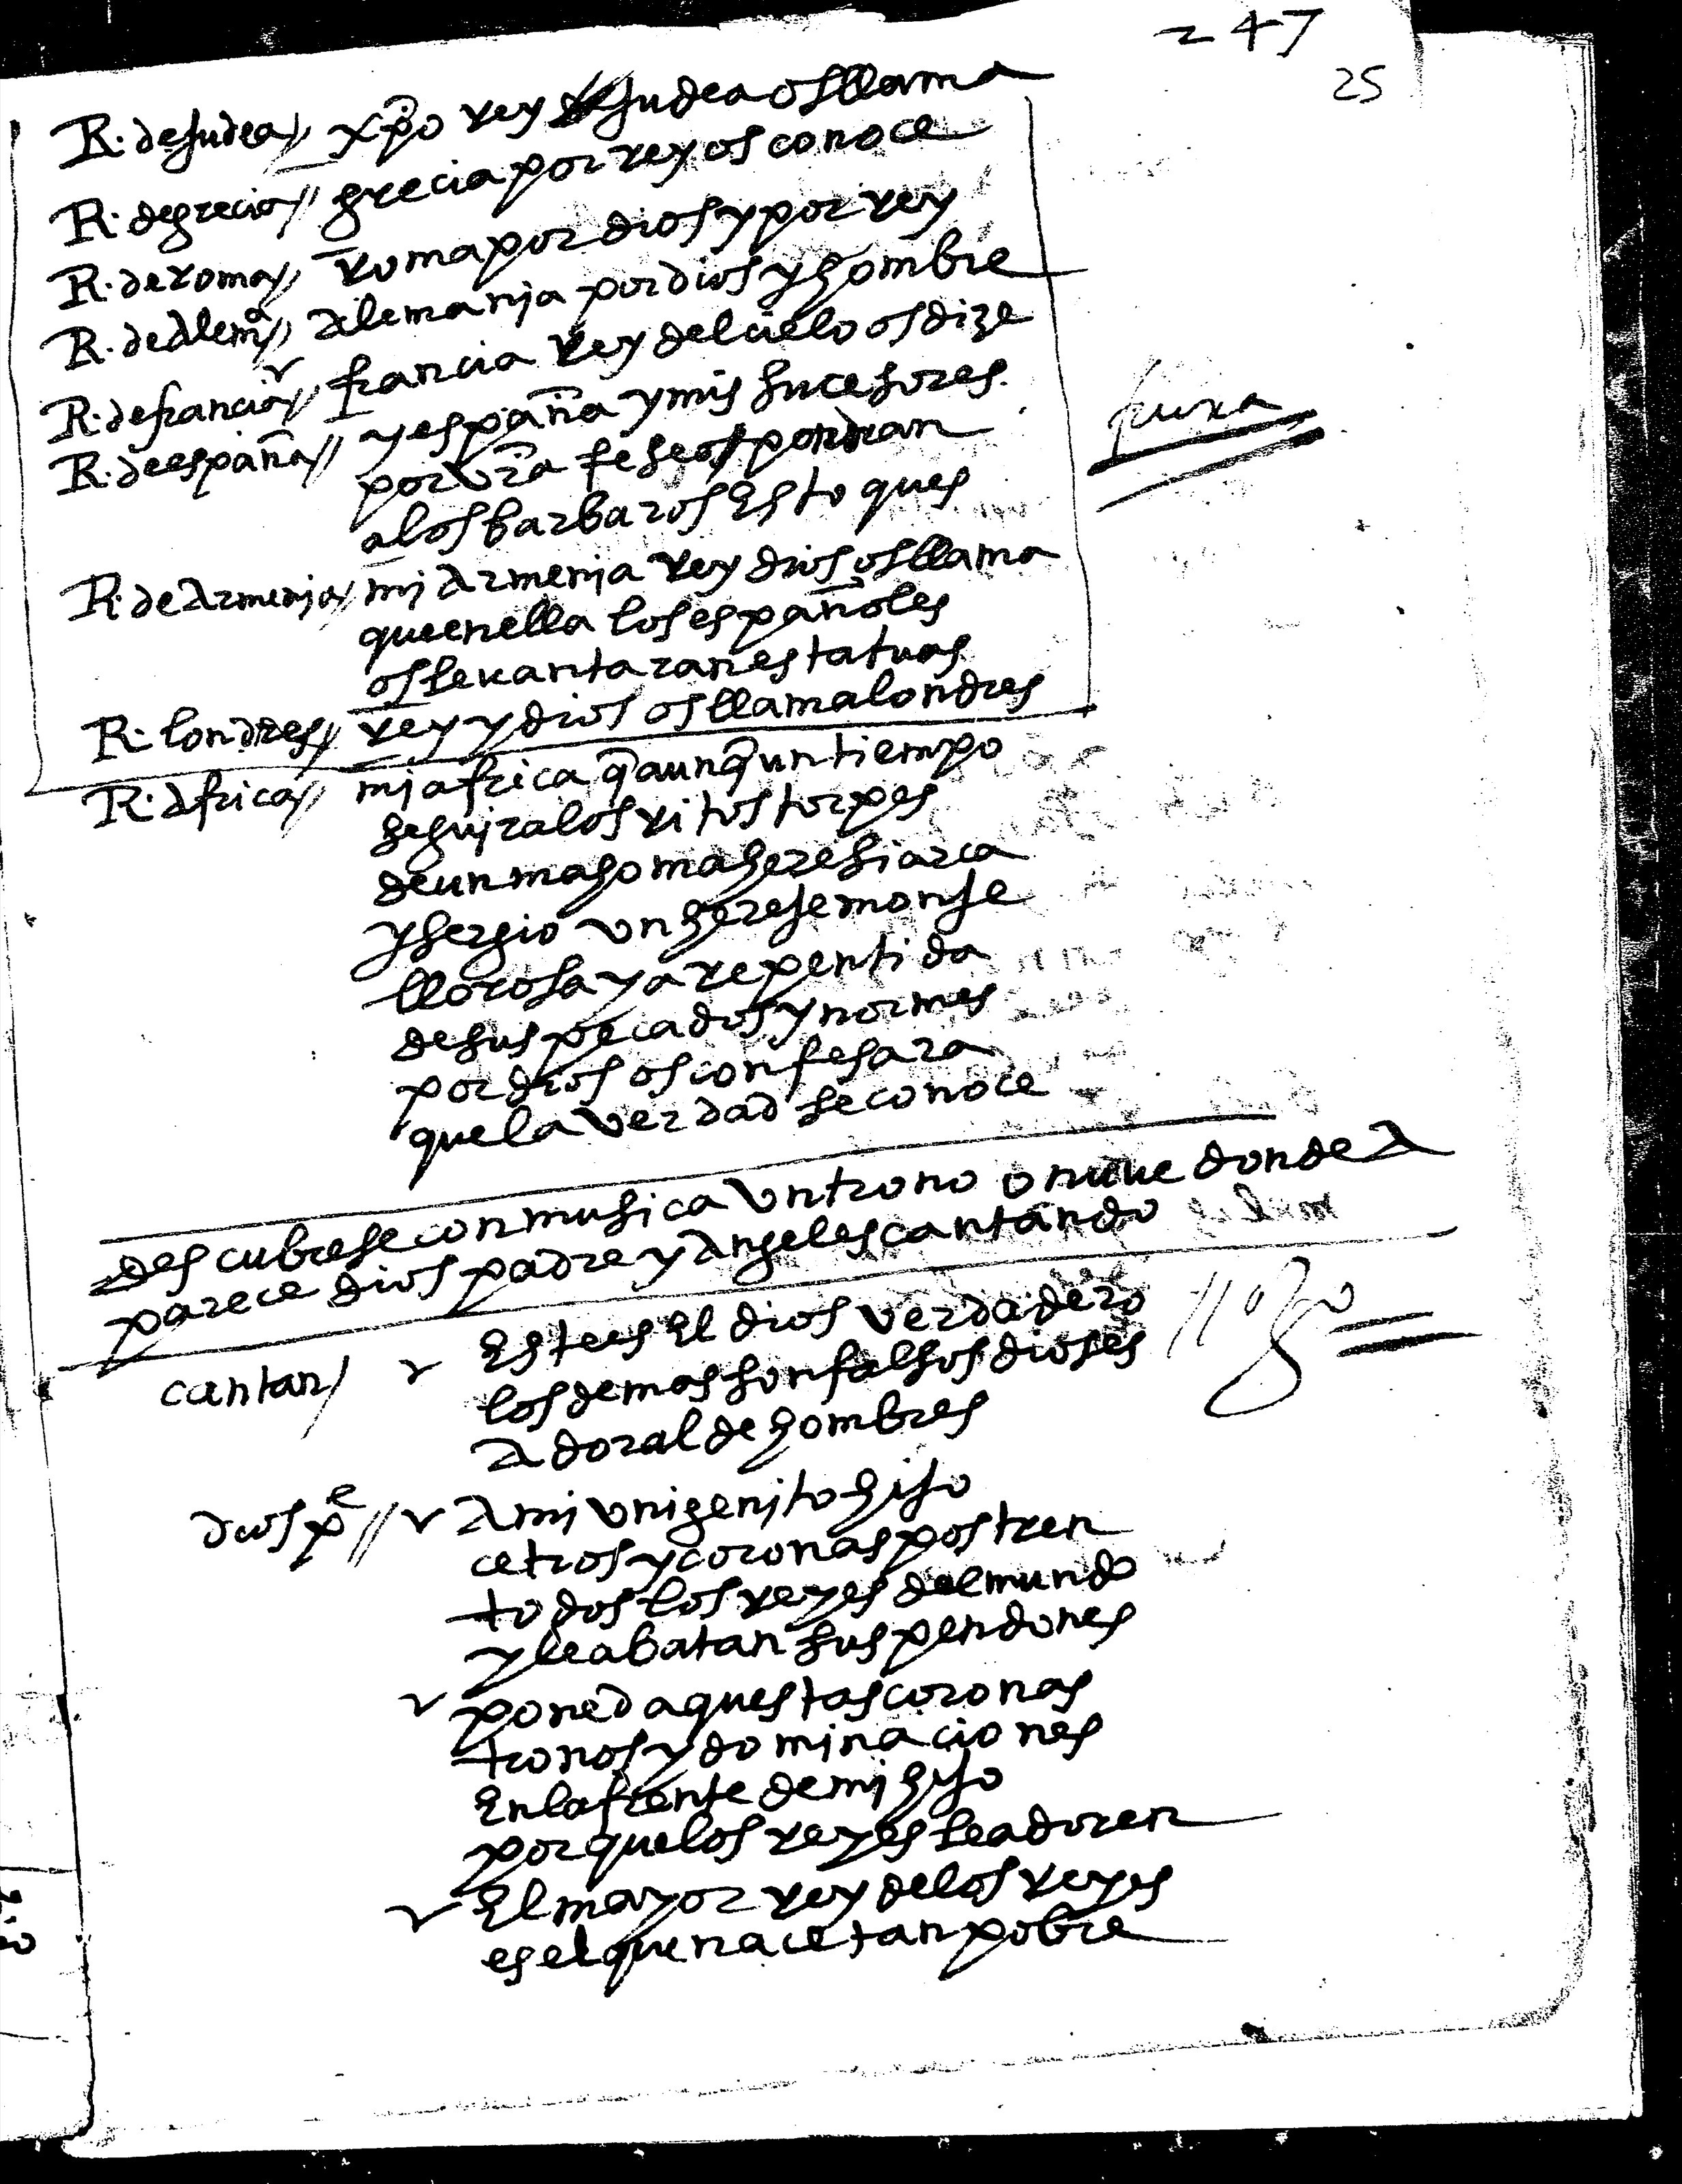 247
25
R. de Judea // xpo rey de Judea os llama
R. de grecia // grecia por rey os conoce
R. de roma // roma por dios y por rey
R. de Alema // Alemania por dios y hombre
R. de francia // francia rey del cielo os dize
R. de españa // y españa y mis sucesores
por vra fe se os pondran
a los barbaros estoques
R. de Armenia // mi Armenia rey dios os llama
que en ella los españoles
os levantaran estatuas
R. londres // rey y dios os llama londres
R. Africa // mi africa q̄ aunq̄ un tiempo
seguira los ritos torpes
de un mahoma heresiarca
y sergio un hereje monje
llorosa y arepentida
de sus pecados ynormes
por dios os confesara
que la verdad se conoce
descubrese con musica un trono o nuve donde A
parece dios padre y Angeles cantando
cantan / Este es El dios verdadero
los demas son falsos dioses
Adoralde hombres
dios pe // A mi unigenito hijo
cetros y coronas postren
todos los reyes del mundo
y le abatan sus pendones
poned aquestas coronas
tronos y dominaciones
En la frente de mi hijo
porque los reyes le adoren
El mayor rey de los reyes
es el que nace tan pobre